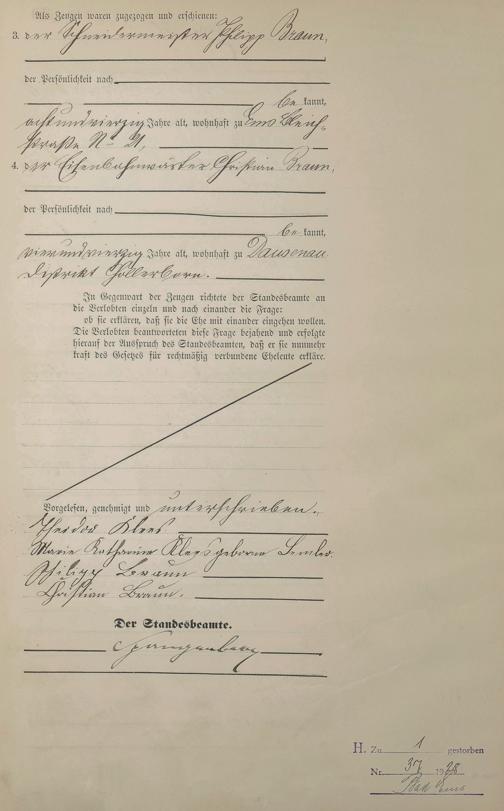 Als Zeugen waren zugezogen und erschienen:
3. der Schneidermeister Philipp Braun,
der Persönlichkeit nach
be kannt,
achtundvierzig Jahre alt, wohnhaft zu Ems Bleich-
straße No 21,
4. der Eisenbahnwärter Christian Braun,
der Persönlichkeit nach
be kannt,
vierundvierzig Jahre alt, wohnhaft zu Dausenau
Distrikt Hollerborn.
In Gegenwart der Zeugen richtete der Standesbeamte an
die Verlobten einzeln und nach einander die Frage:
ob sie erklären, daß sie die Ehe mit einander eingehen wollen.
Die Verlobten beantworteten diese Frage bejahend und erfolgte
hierauf der Ausspruch des Standesbeamten, daß er sie nunmehr
kraft des Gesetzes für rechtmäßig verbundene Eheleute erkläre.
Vorgelesen, genehmigt und unterschrieben.
Theodor Klees
Marie Katharine Klees geborne
Philipp Braun
Christian Braun.
Der Standesbeamte.
Spangenberg
H. Zu 1 gestorben
Nr. 37 1928
Bad Ems